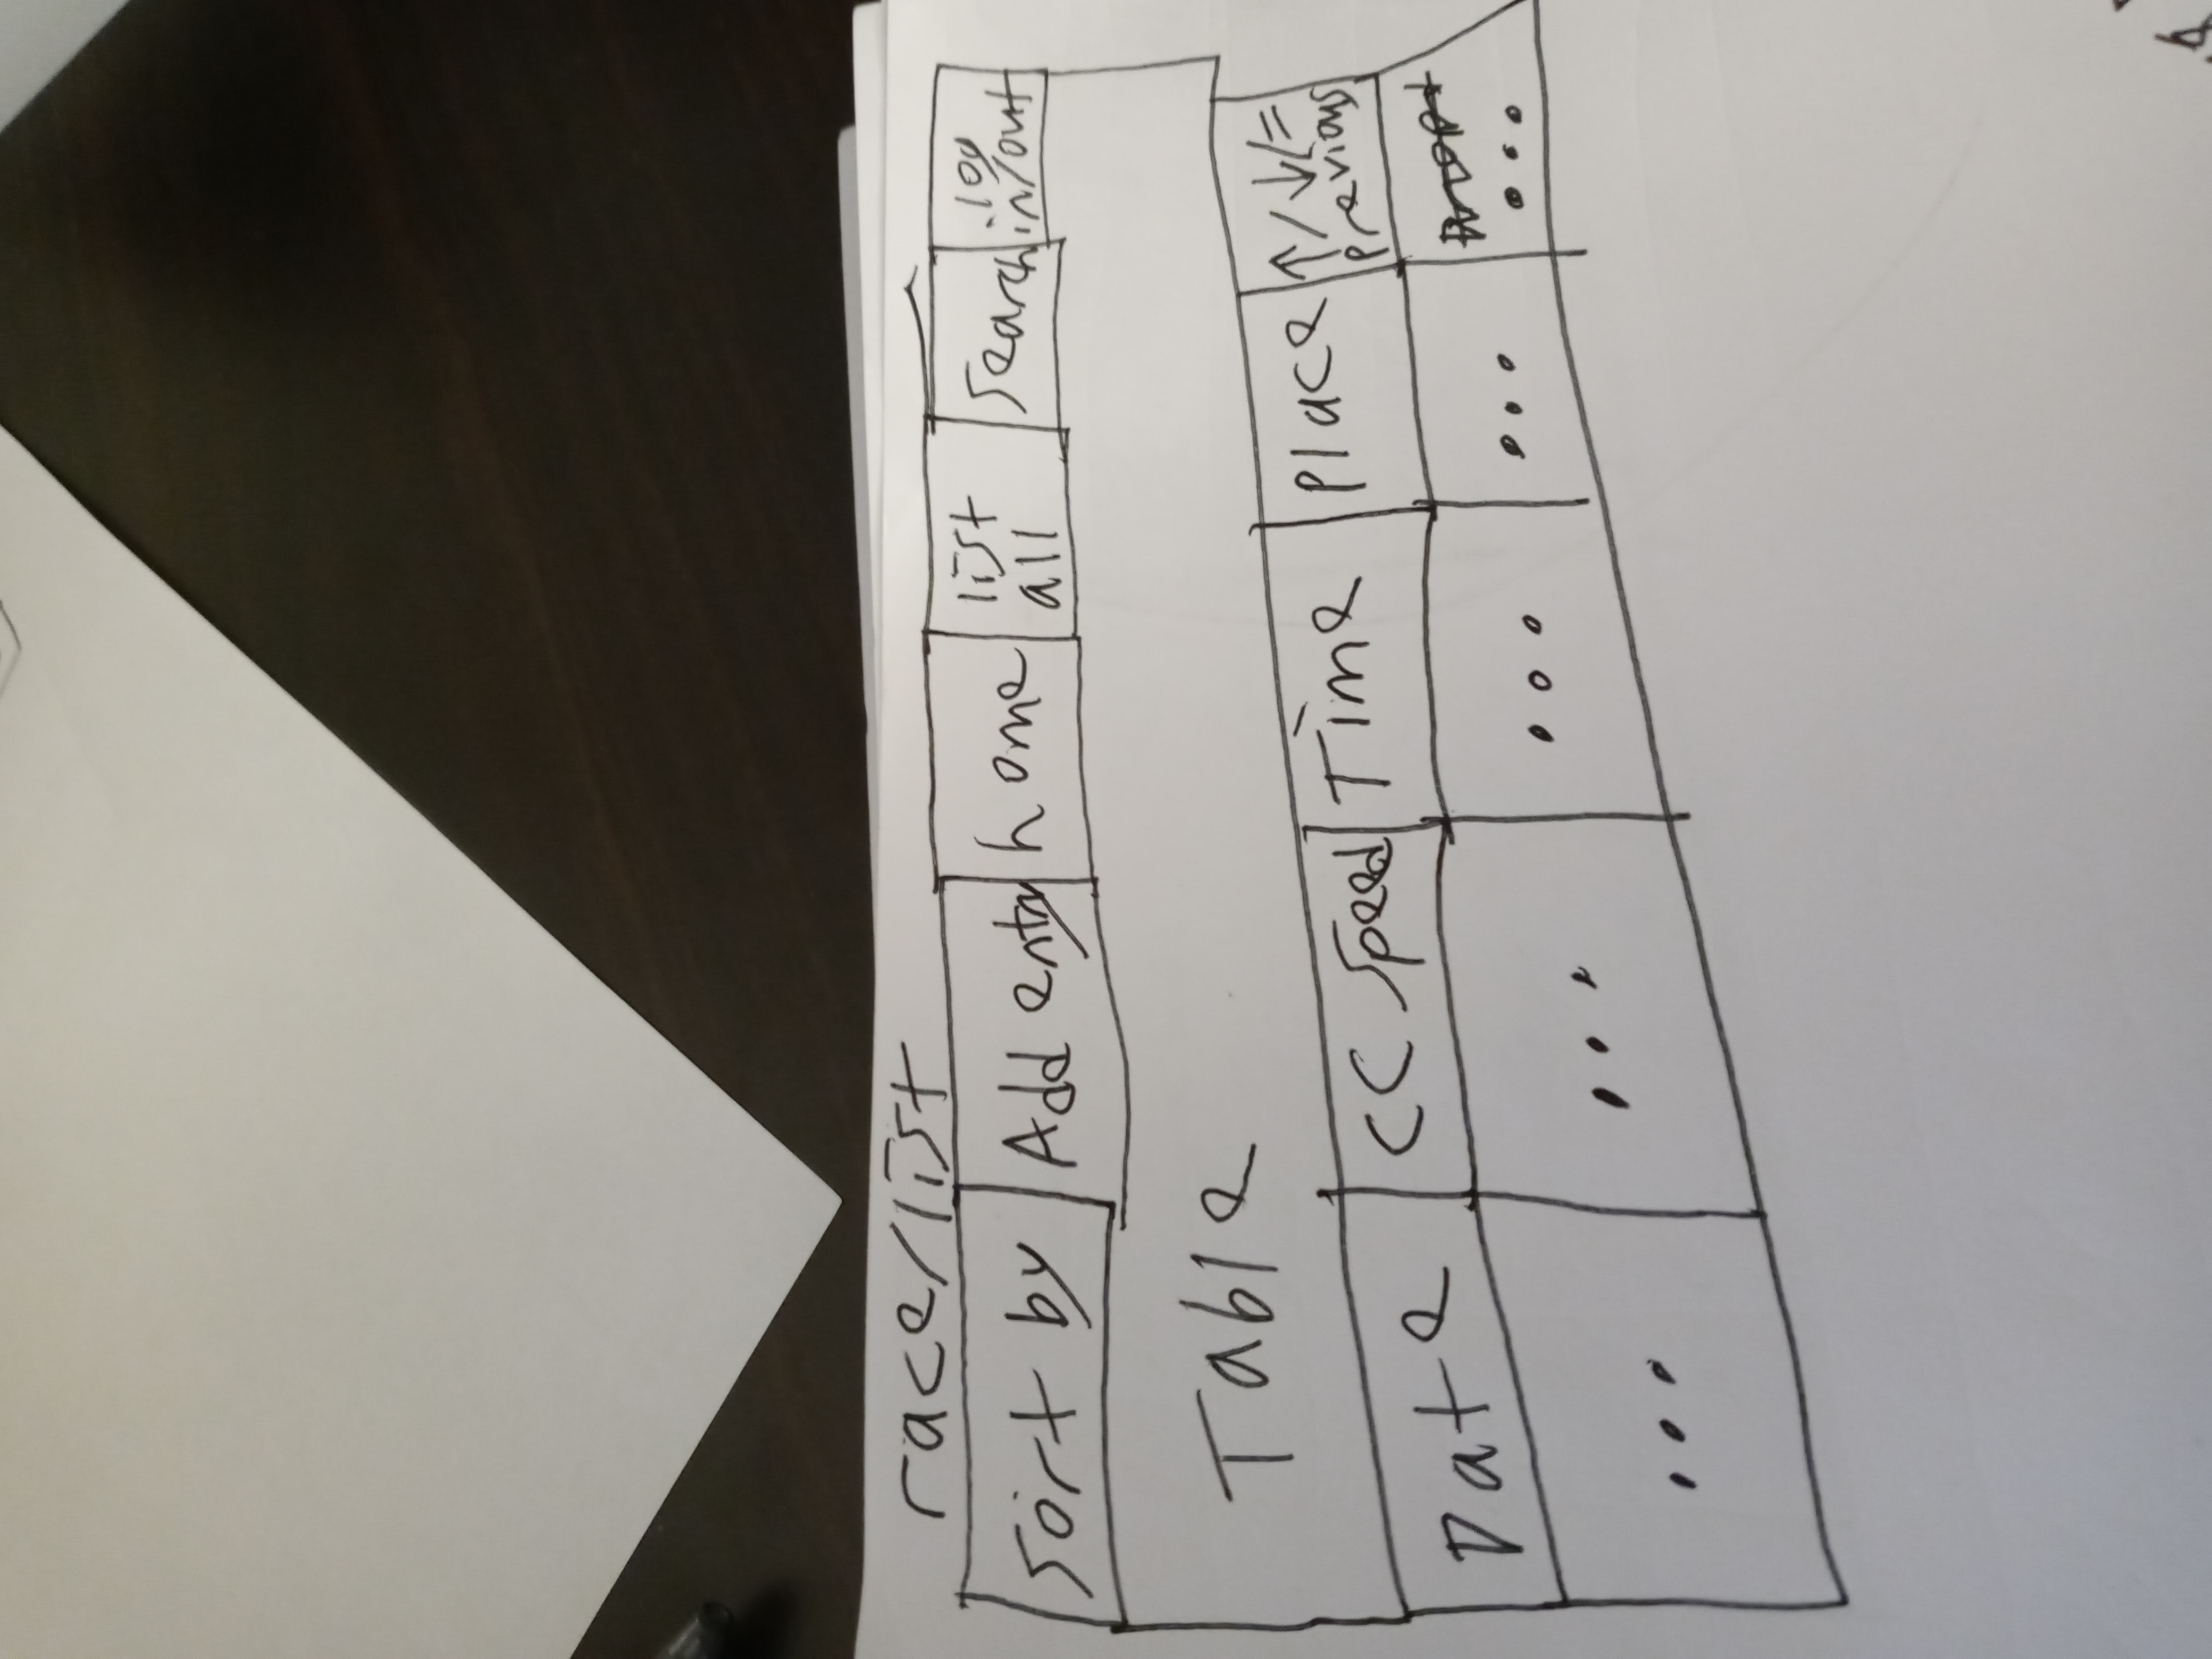 race/list
Sort by Add entry home list all search log in/out
Table
Date CC Speed Time Place ↑/↓/= previous
... ... ... ... ...